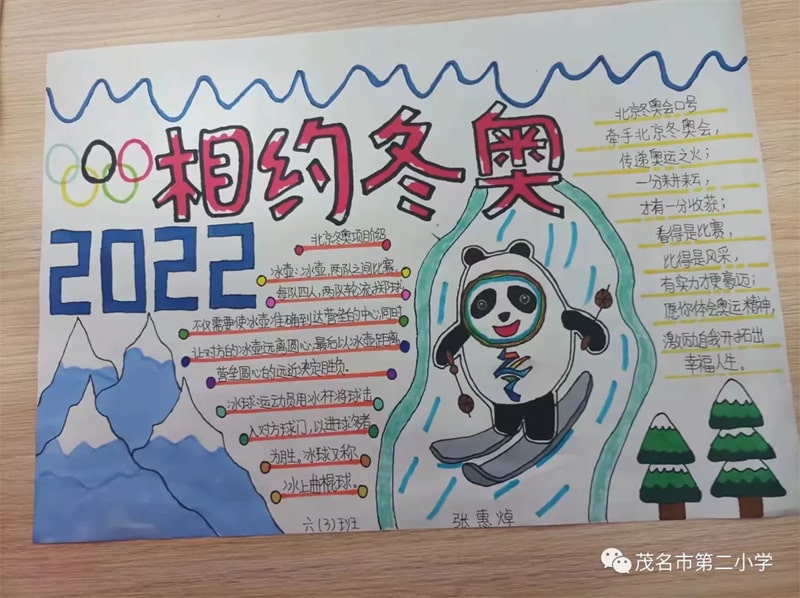 相约冬奥
2022
北京冬奥项目介绍
冰壶:冰壶,两队之间比赛
每队四人,两队轮流掷球
不仅需要使冰壶准确到达营垒的中心,同时
让对方的冰壶远离圆心,最后以冰壶距离
营垒圆心的远近决定胜负。
冰球:运动员用冰杆将球击
入对方球门,以进球多者
为胜。冰球又称
冰上曲棍球。
六(3)班
张惠焯
北京冬奥会口号
牵手北京冬奥会,
传递奥运之火;
一分耕耘,
才有一分收获;
看得是比赛,
比得是风采,
有实力才更豪迈;
愿你体会奥运精神,
激励后我开拓出
幸福人生。
茂名市第二小学